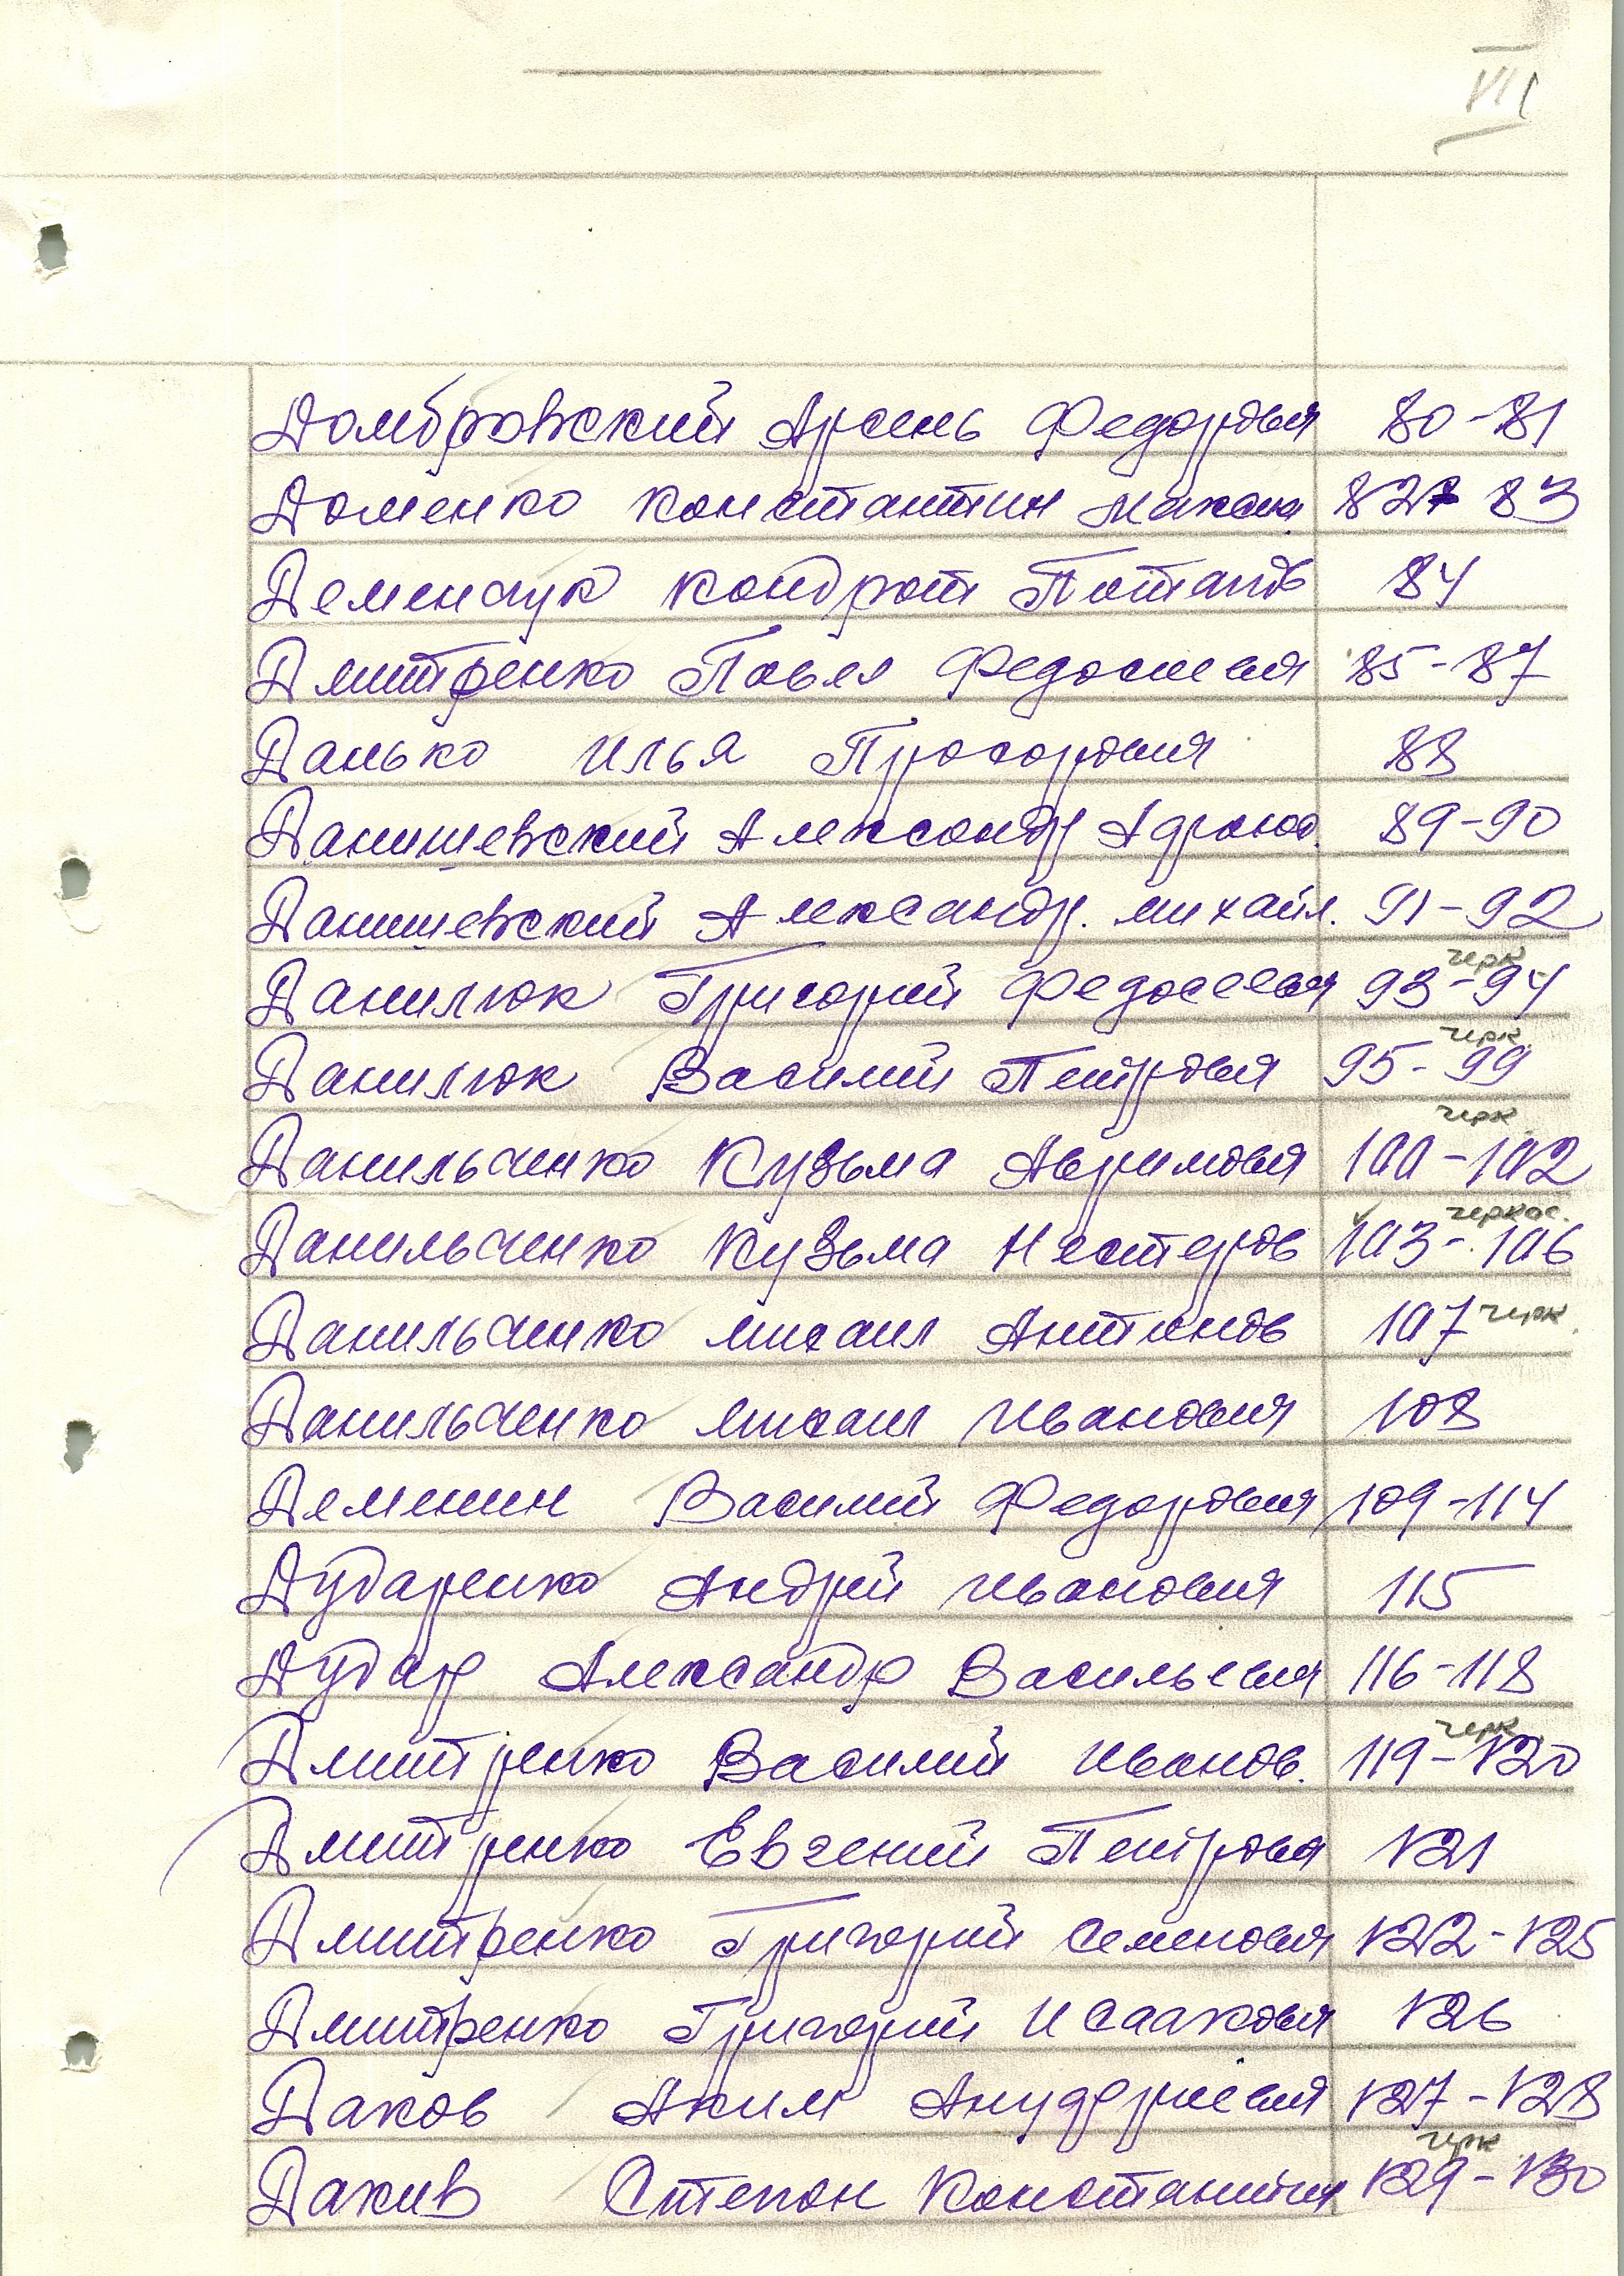 VII
Домбровский Арсень Федорович 80-81
Доменко Константин Максим. 82-83
Деменчук Кондрат Потапов 84
Дмитренко Павел Федосиевич 85-87
Данько Илья Прохорович 88
Данишевский Александр 89-90
Данишевский Александр. Михайл. 91-92
Данилюк Григорий Федосеевич 93-94 черк
Данилюк Василий Петрович 95-99 черк.
Данильченко Кузьма 100-102 черк
Данильченко Кузьма Нестеров 103-106 черкас.
Данильченко Михаил Антонов 107 черк.
Данильченко Михаил Иванович 108
Деменин Василий Федорович 109-114
Дударенко Андрей Иванович 115
Дудар Александр Васильевич 116-118
Дмитренко Василий Иванов. 119-120 черк
Дмитренко Евгений Петрович 121
Дмитренко Григорий Семенович 122-125
Дмитренко Григорий Исаакович 126
Даков Аким 127-128
Дакив Степан Константин 129-130 черк